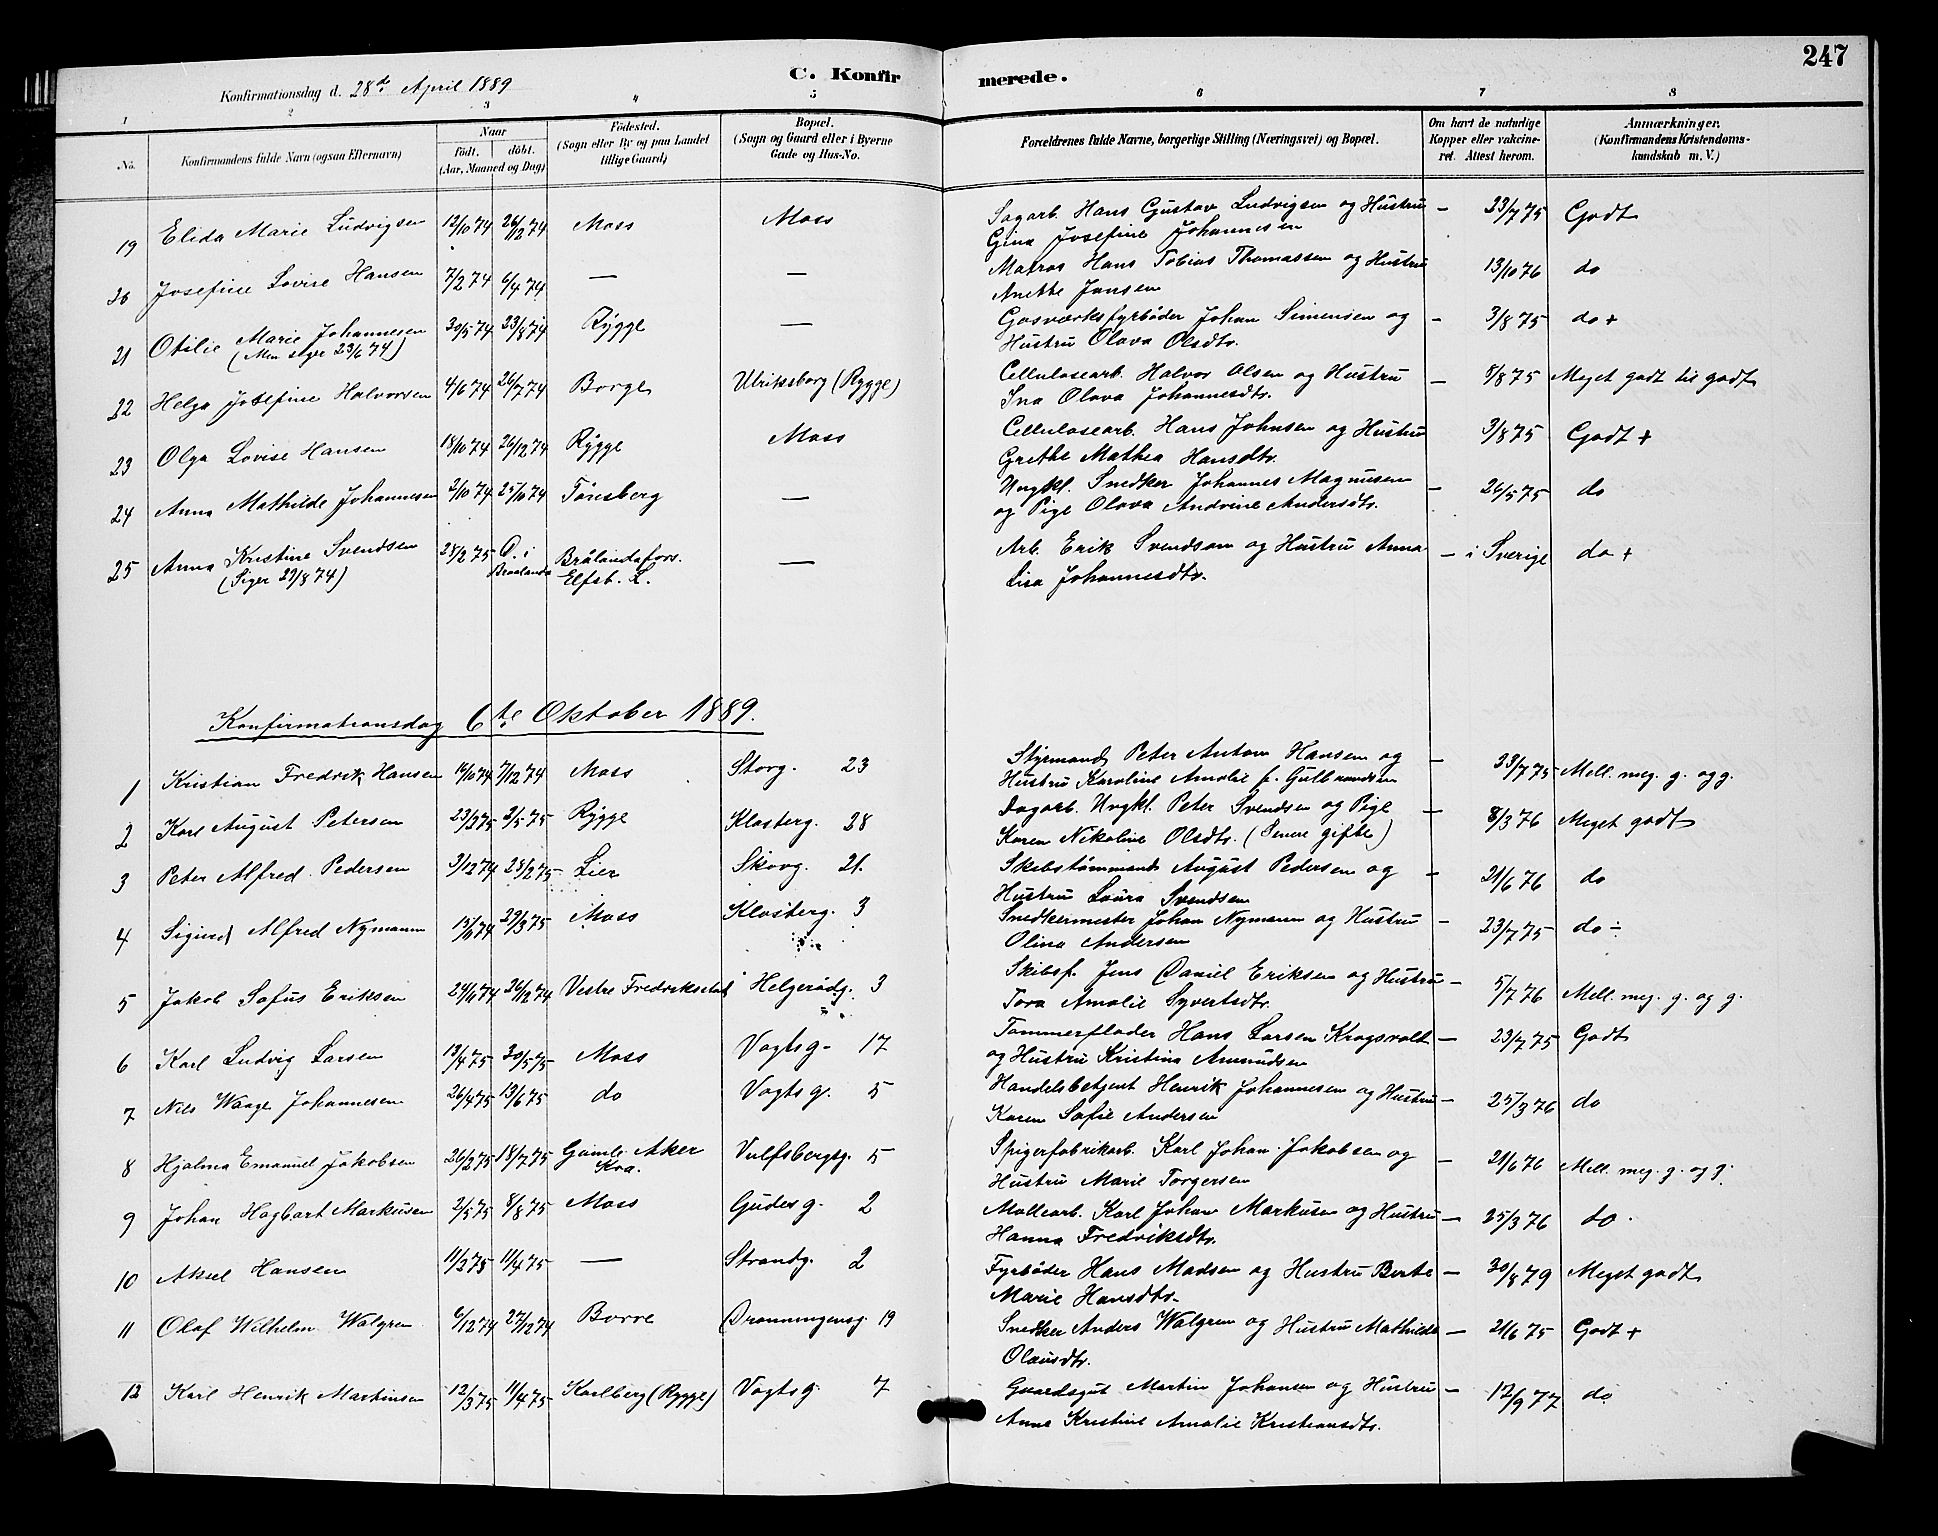 247
C. Konfirmerede.
Konfirmationsdag d. 28de April 1889
1 2 3 4 5 6 7 8
No. Konfirmandens fulde Navn (ogsaa Efternavn) Naar født. døbt. (Aar, Maaned og Dag) Fødested. (Sogn eller By og paa Landet tillige Gaard) Bopæl. (Sogn og Gaard eller i Byerne Gade og Hus-No. Forældrenes fulde Navne, borgerlige Stilling (Næringsvei) og Bopæl. Om havt de naturlige Kopper eller vakcineret. Attest herom. Anmærkninger. (Konfirmandens Kristendomskundskab m. V.)
19 Elida Marie Ludvigsen 12/10 74 26/12 74 Moss Moss Sagarb. Hans Gustav Ludvigsen og Hustru – 23/7 75 Godt
Gina Josefine Johannesen
20 Josefine Lovise Hansen 7/2 74 6/4 74 — — Matros Hans Tobias Thomassen og Hustru 13/10 76 do
Anette Jansen
21 Otilie Marie Johannesen 30/5 74 23/8 74 Rygge — Gasværksfyrbøder Johan Simensen og – 3/8 75 do +
(Men siger 23/6 74) Hustru Olava Olsdtr.
22 Helga Josefine Halvorsen 4/6 74 26/7 74 Borge Ulriksborg (Rygge) Cellulosearb. Halvor Olsen og Hustru – 8/8 75 Meget godt til godt
Ina Olava Johannesdtr.
23 Olga Lovise Hansen 18/10 74 26/12 74 Rygge Moss Cellulosearb. Hans Johnsen og Hustru – 3/8 75 Godt +
Grethe Mathea Hansdtr.
24 Anna Mathilde Johannesen 2/10 74 25/10 74 Tønsberg — Ungkl. Snedker Johannes Magnusen – 26/5 75 do
og Pige Olava Andrine Andersdtr.
25 Anna Kristine Svendsen 28/2 75 D. i Braalanda Brålandafors. Elfsb. L. — Arb. Erik Svendsen og Hustru Anna – i Sverige do +
(Siger 27/8 74) Lisa Johannesdtr.
Konfirmationsdag 6te Oktober 1889.
1 Kristian Fredrik Hansen 16/10 74 7/12 74 Moss Storg. 23 Styrmand Peter Anton Hansen og – 23/7 75 Mell. meg. g. og g.
Hustru Karoline Amalie f. Gulbrandsen
2 Karl August Petersen 23/2 75 2/5 75 Rygge Klosterg. 28 Dagarb. Ungkl. Peter Svendsen og Pige – 8/3 76 Meget godt
Karen Nikoline Olsdtr. (Senere gifte)
3 Peter Alfred Pedersen 3/12 74 28/2 75 Lier Skovg. 21. Skibstømmand August Pedersen og – 21/6 76 do
Hustru Laura Svendsen
4 Sigurd Alfred Nymann 15/11 74 29/3 75 Moss Klosterg. 3 Snedkermester Johan Nymann og Hustru – 23/7 75 do ÷
Olina Andersen
5 Jakob Sofus Eriksen 24/11 74 26/12 74 Vestre Fredrikstad Helgerødg. 3 Skibsf. Jens Daniel Eriksen og Hustru – 5/7 76 Mell. meg. g. og g.
Tora Amalie Syvertsdtr.
6 Karl Ludvig Larsen 13/4 75 30/5 75 Moss Vogtsg- 17 Tømmerflåder Hans Larsen Kragsvolt – 23/7 75 Godt
og Hustru Kristina Amundsen
7 Nils Waage Johannesen 26/4 75 13/6 75 do Vogtsg. 5 Handelsbetjent Henrik Johannesen og Hustru – 25/3 76 do
Karen Sofie Andersen
8 Hjalmar Emanuel Jakobsen 26/2 75 18/7 75 Gamle Aker Kra. Vulfsbergg. 5 Spigerfabrikarb. Karl Johan Jakobsen og – 21/6 76 Mell. meg. g. og g.
Hustru Marie Torgersen
9 Johan Hagbart Markusen 2/5 75 8/8 75 Moss Gudesg. 2 Møllearb. Karl Johan Markusen og Hustru – 25/3 76 do.
Hanna Fredriksdtr.
10 Aksel Hansen 11/2 75 11/4 75 — Strandg. 2 Fyrbøder Hans Madsen og Hustru Berte – 30/8 79 Meget godt
Marie Hansdtr.
11 Olaf Wilhelm Walgren 6/12 74 27/12 74 Borre Dronningensg. 19 Snedker Anders Walgren og Hustru Mathilde – 21/6 75 Godt +
Olausdtr.
12 Karl Henrik Martinsen 12/3 75 11/4 75 Karlberg (Rygge) Vogtsg. 7 Gaardsgut Martin Johansen og Hustru – 12/9 77 do
Anna Kristine Amalie Kristiansdtr.